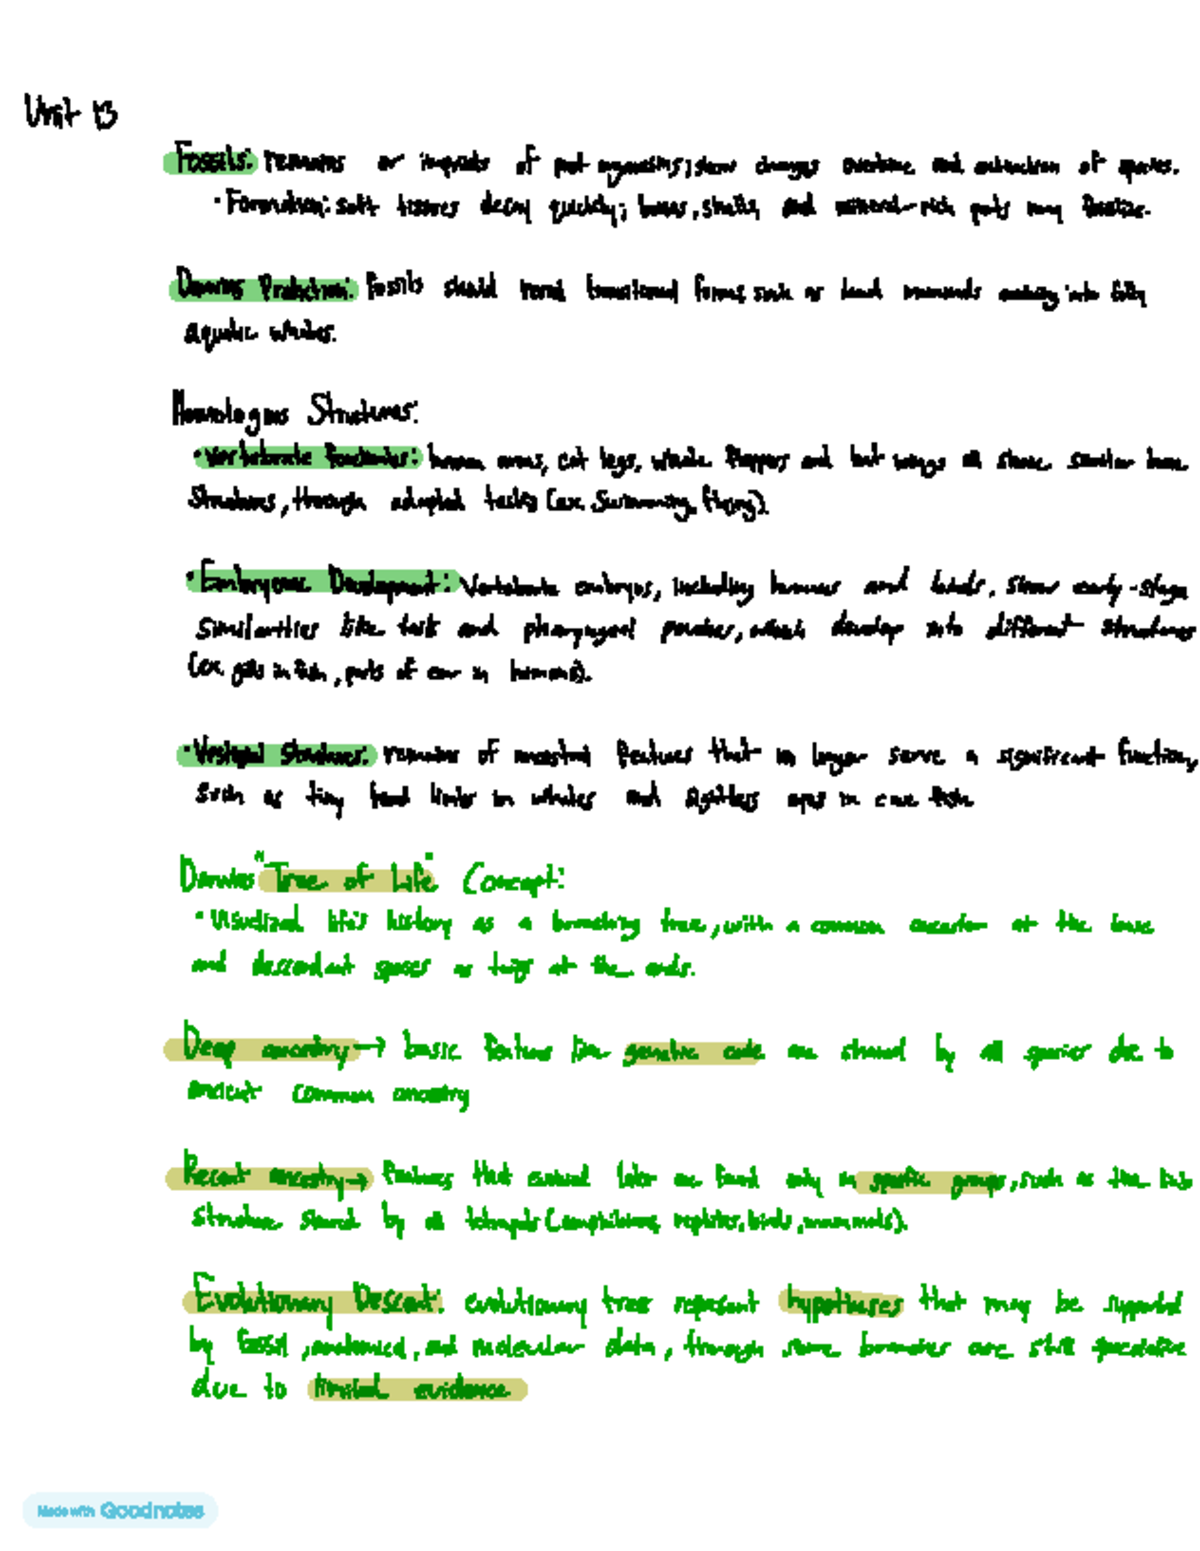 Unit 13
Fossils: remains or imprints of past organisms; show changes overtime and extinction of species.
• Formation: soft tissues decay quickly; bones, shells, and mineral-rich parts may fossilize.
Darwins Prediction: Fossils should reveal transitional forms, such as land mammals evolving into fully
aquatic whales.
Homologous Structures:
• Vertebrate Forelimbs: human arms, cat legs, whale flippers and bat wings all share similar bone
structures, through adapted tasks (ex. Swimming, flying).
• Embryonic Development: Vertebrate embryos, including humans and birds, show early-stage
similarities like tails and pharyngeal pouches, which develop into different structures
(ex. gills in fish, parts of ear in humans).
• Vestigial Structures: remains of ancestral features that no longer serve a significant function,
such as tiny hind limbs in whales and sightless eyes in cave fish.
Darwins "Tree of Life" Concept:
• Visualized life's history as a branching tree, with a common ancestor at the base
and descendant species as twigs at the ends.
Deep ancestry → basic features like genetic code are shared by all species due to
ancient common ancestry
Recent ancestry → features that evolved later are found only in specific groups, such as the limb
structure shared by all tetrapods (amphibians, reptiles, birds, mammals).
Evolutionary Descent: evolutionary trees represent hypotheses that may be supported
by fossil, anatomical, and molecular data, through some branches are still speculative
due to limited evidence
Made with Goodnotes